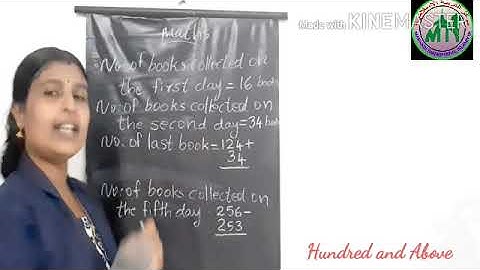 Made with KINEMASTER
Maths
No: of books collected on
the first day = 16 books
No: of books collected on
the second day = 34 books
No: of last book = 124 +
34
No: of books collected on
the fifth day 256 -
253
Hundred and Above